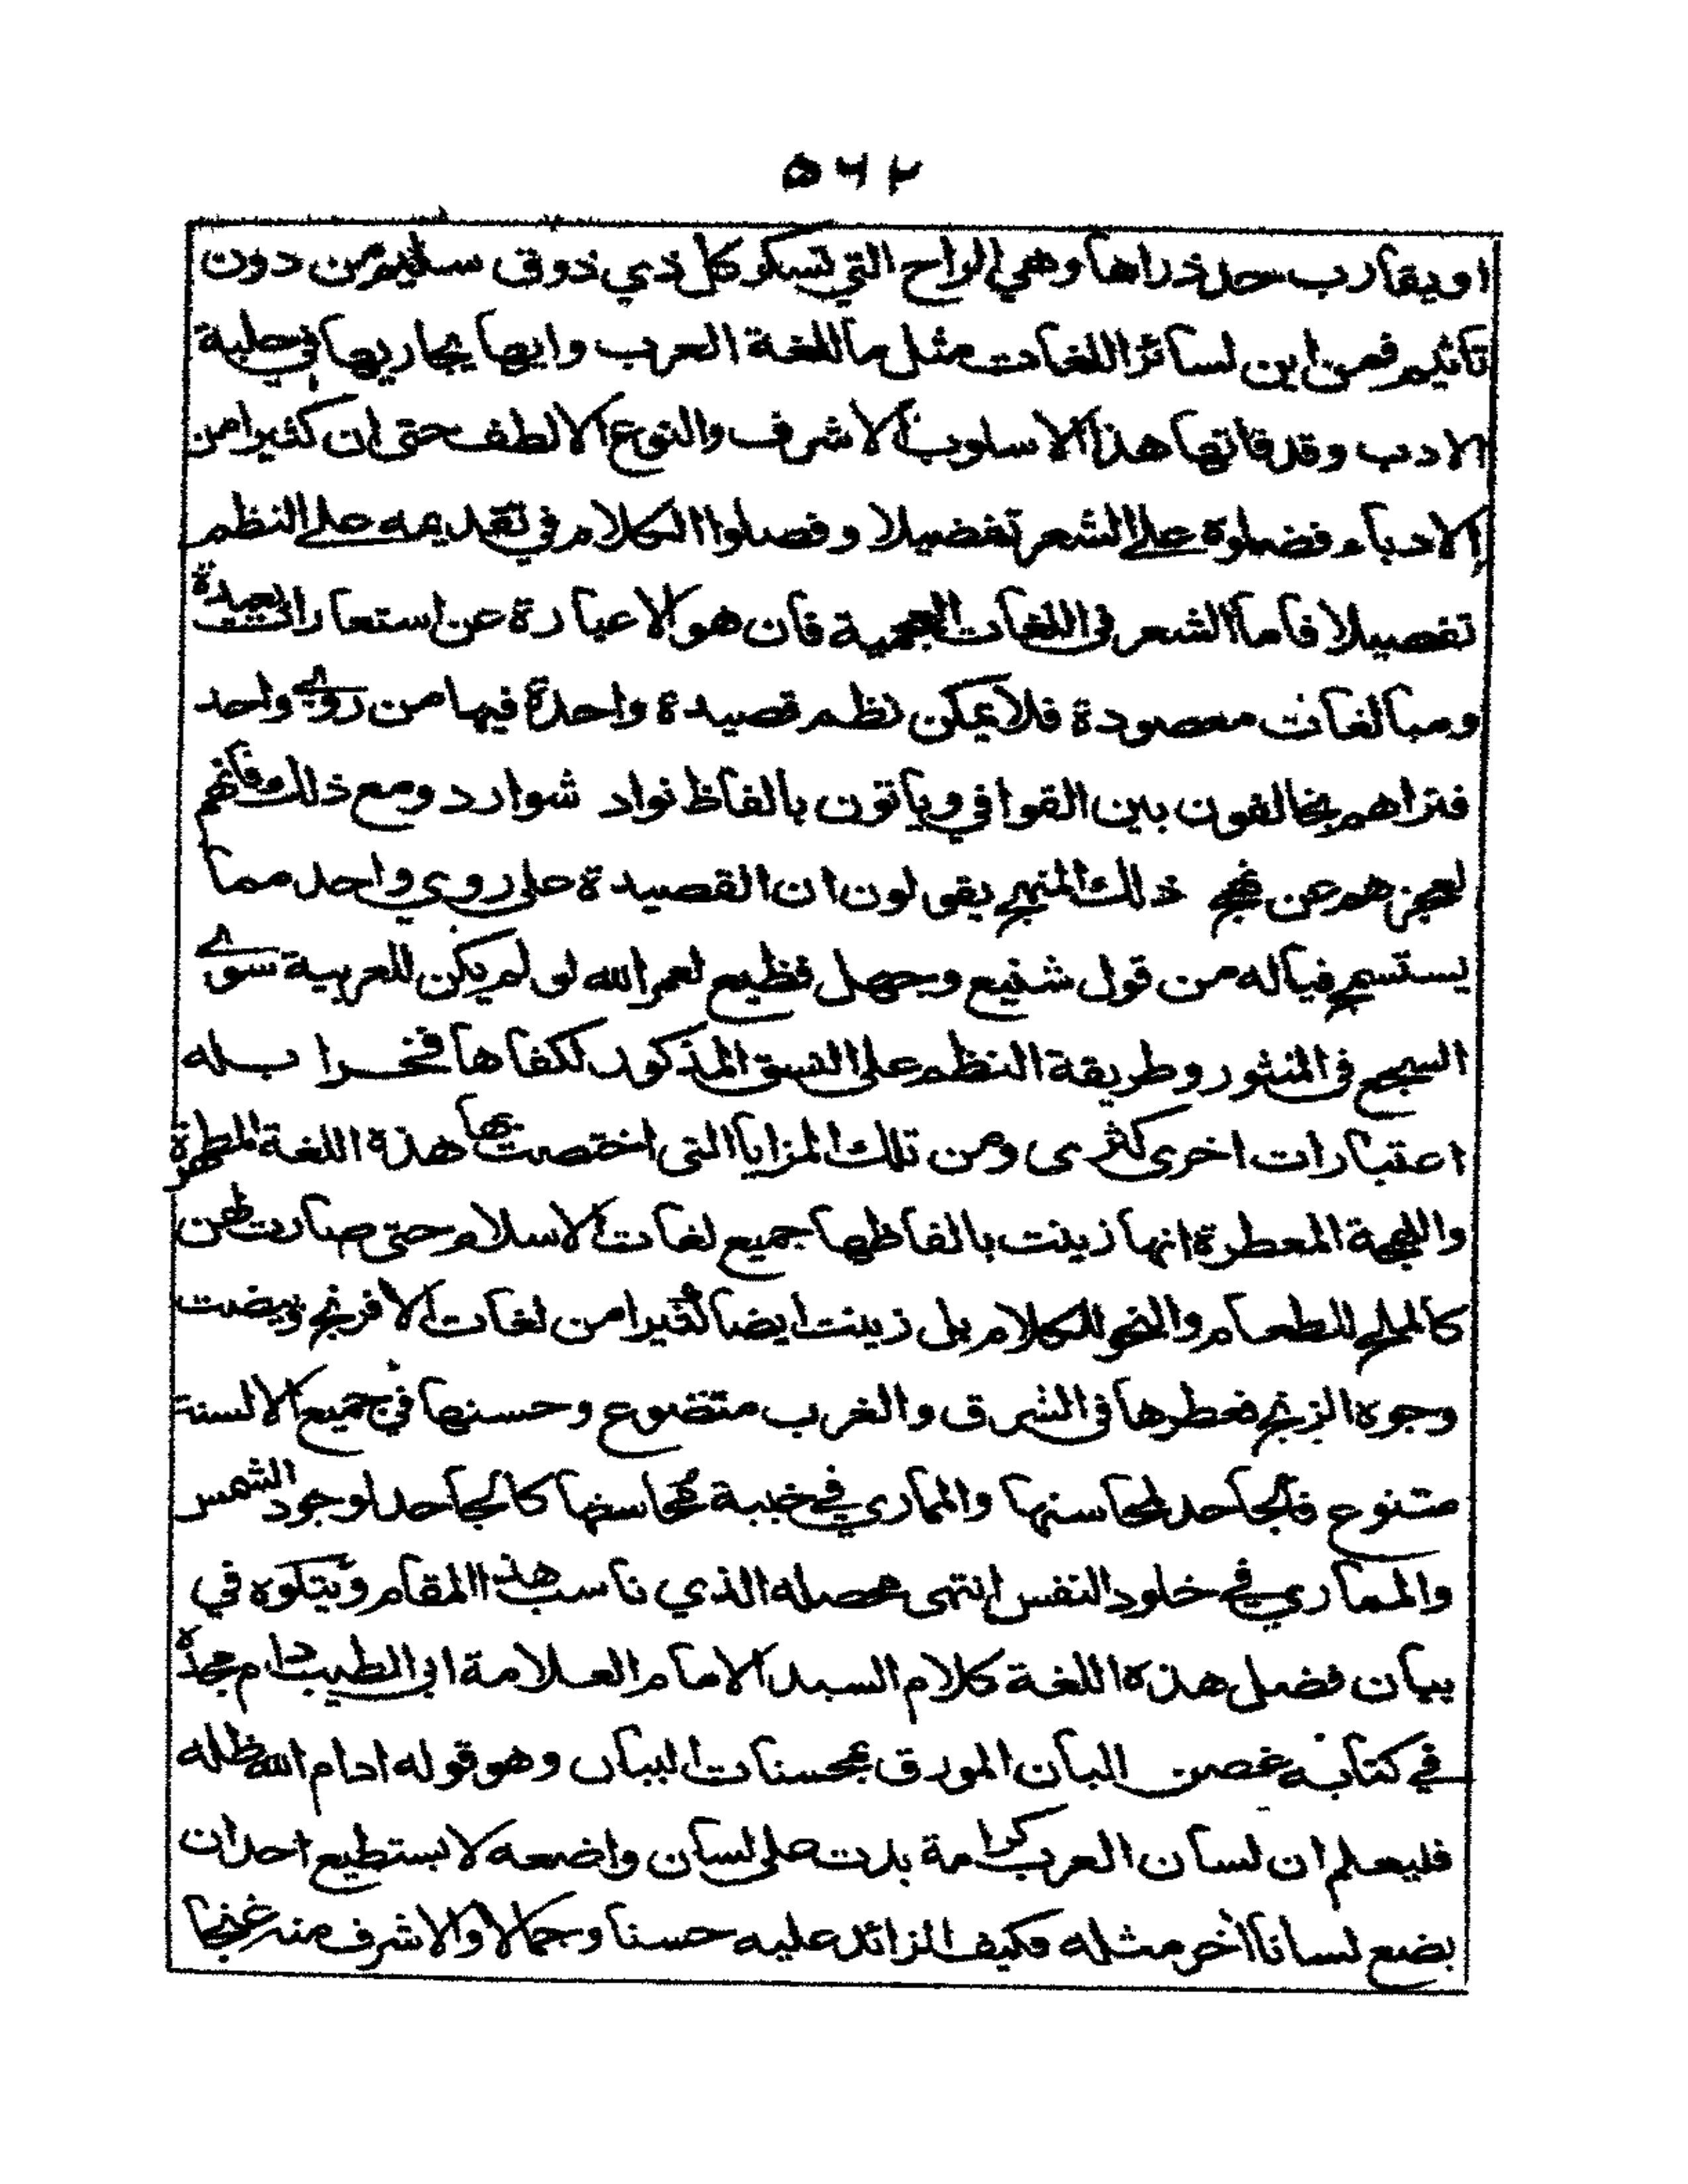 ٥٦٢
او يقارب حد ذراها وهي الراح التي تسكر كل ذي ذوق سليم من دون
تاثيم فمن اين لسائر اللغات مثل ما للغة العرب وايها يجاريها في حلبة
الادب وقد فاتها هذا الاسلوب الاشرف والنوع الالطف حتى ان كثيرا من
الادباء فضلوه على الشعر تفضيلا وفصلوا الكلام في تقديمه على النظم
تفصيلا فاما الشعر فى اللغات العجمية فان هو الا عبارة عن استعارات بعيدة
ومبالغات معصودة فلا يمكن نظم قصيدة واحدة فيها من روي واحد
فتراهم يخالفون بين القوافي وياتون بالفاظ نواد شوارد ومع ذلك فانهم
لعجزهم عن نهج ذلك المنهج يقولون ان القصيدة على روي واحد مما
يستسمج فياله من قول شنيع وجهل فظيع لعمر الله لو لم يكن للعربية سوى
السجع فى المنثور وطريقة النظم على النسق المذكور لكفاها فخرا بله
اعتبارات اخرى كثرى ومن تلك المزايا التى اختصت بها هذه اللغة المطهرة
واللهجة المعطرة انها زينت بالفاظها جميع لغات الاسلام حتى صارت لهن
كالملح للطعام والنحو للكلام بل زينت ايضا كثيرا من لغات الافرنج وبيضت
وجوه الزنج فعطرها فى الشرق والغرب متضوع وحسنها في جميع الالسنة
متنوع فالجاحد لمحاسنها والمماري في محاسنها كالجاحد لوجود الشمس
والمماري في خلود النفس انتهى محصله الذي ناسب هذا المقام ويتلوه في
بيان فضل هذه اللغة كلام السيد الامام العلامة ابى الطيب دام مجده
في كتابه غصن البان المورق بمحسنات البيان وهو قوله ادام الله ظله
فليعلم ان لسان العرب كرامة بدت على لسان واضعه لا يستطيع احد ان
يضع لسانا أخر مثله فكيف الزائد عليه حسنا وجمالا والاشرف منه غنجا